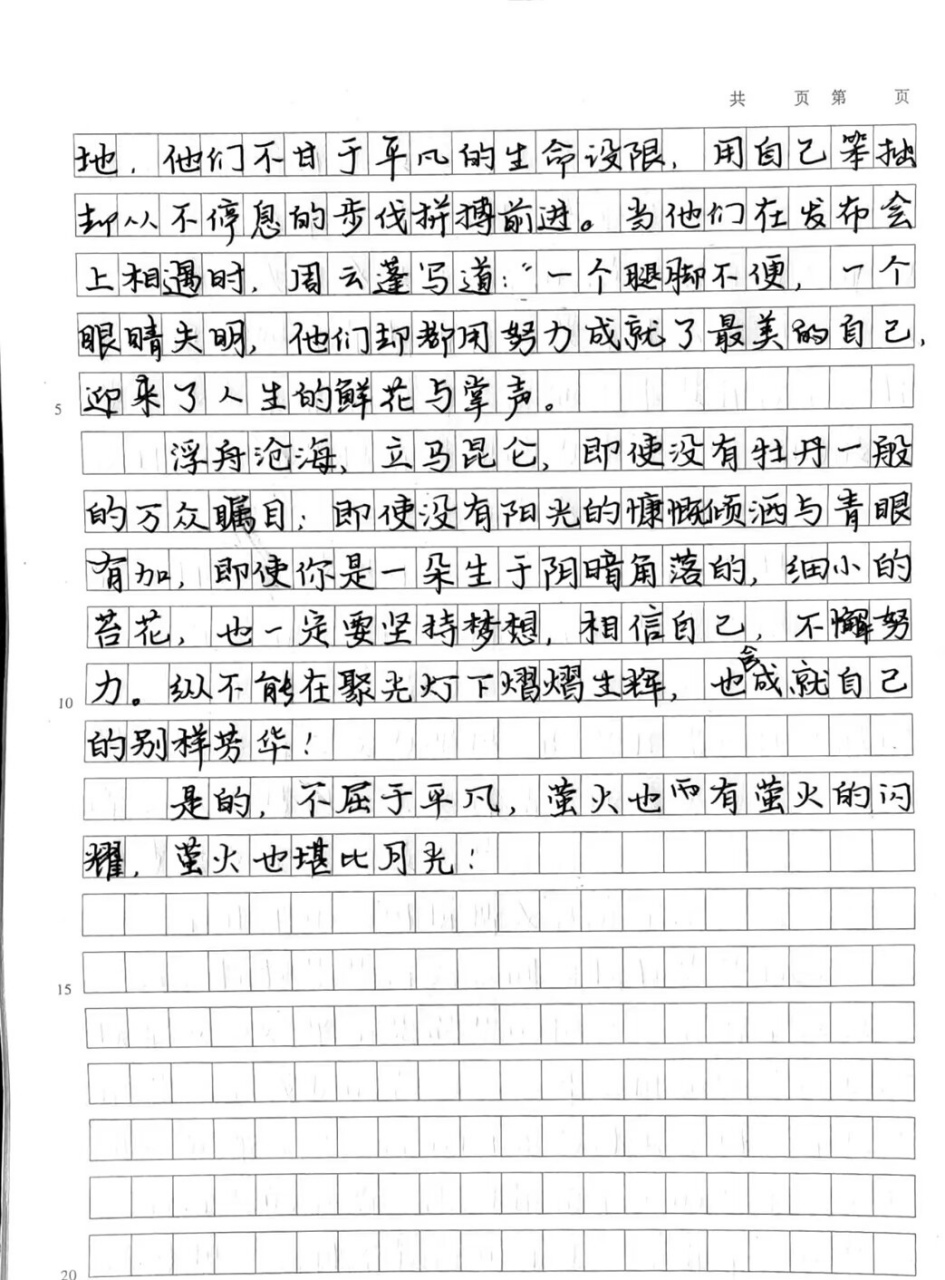 共 页 第 页
地，他们不甘于平凡的生命设限，用自己笨拙
却从不停息的步伐拼搏前进。当他们在发布会
上相遇时，周云蓬写道：“一个腿脚不便，一个
眼睛失明，他们却都用努力成就了最美的自己，
5 迎来了人生的鲜花与掌声。
浮舟沧海，立马昆仑，即使没有牡丹一般
的万众瞩目；即使没有阳光的慷慨倾洒与青眼
有加，即使你是一朵生于阴暗角落的，细小的
苔花，也一定要坚持梦想，相信自己，不懈努
10 力。纵不能在聚光灯下熠熠生辉，也会成就自己
的别样芳华！
是的，不屈于平凡，萤火也而有萤火的闪
耀，萤火也堪比月光！
15
20